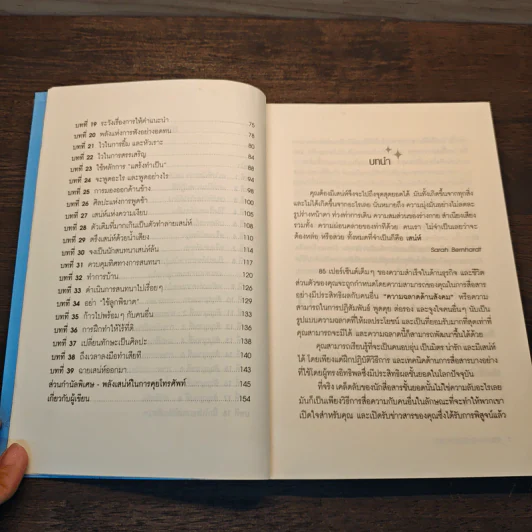 บทที่ 19 ระวังเรื่องการให้คำแนะนำ 76
บทที่ 20 พลังแห่งการฟังอย่างอดทน 78
บทที่ 21 ไวในการยิ้ม และหัวเราะ 80
บทที่ 22 ไวในการสรรเสริญ 84
บทที่ 23 ใช้หลักการ "แสร้งทำเป็น" 88
บทที่ 24 จะพูดอะไร และพูดอย่างไร 94
บทที่ 25 การมองออกด้านข้าง 98
บทที่ 26 ศิลปะแห่งการพูดช้า 100
บทที่ 27 เสน่ห์แห่งความเงียบ 104
บทที่ 28 ตัวเติมที่มากเกินเป็นตัวทำลายเสน่ห์ 106
บทที่ 29 สร้างเสน่ห์ด้วยน้ำเสียง 108
บทที่ 30 จงเป็นนักสนทนาเสน่ห์ล้น 112
บทที่ 31 ควบคุมทิศทางการสนทนา 116
บทที่ 32 ทำการบ้าน 120
บทที่ 33 ดำเนินการสนทนาไปเรื่อยๆ 122
บทที่ 34 อย่า "ใช้ลูกพิฆาต" 126
บทที่ 35 ก้าวไปพร้อมๆ กับคนอื่น 130
บทที่ 36 การฝึกทำให้ไร้ที่ติ 132
บทที่ 37 เปลี่ยนทักษะเป็นศิลปะ 136
บทที่ 38 ถึงเวลาลงมือทำเสียที 138
บทที่ 39 ฉายเสน่ห์ออกมา 142
ส่วนกำนัลพิเศษ - พลังเสน่ห์ในการคุยโทรศัพท์ 145
เกี่ยวกับผู้เขียน 154
บทนำ
คุณต้องมีเสน่ห์จึงจะไปถึงจุดสุดยอดได้ มันตั้งเกิดขึ้นจากทุกสิ่ง
และไม่ได้เกิดขึ้นจากอะไรเลย นั่นหมายถึง ความมุ่งมั่นอย่างไม่ลดละ
รูปร่างหน้าตา ท่วงท่าการเดิน ความสมส่วนของร่างกาย สำเนียงเสียง
รวมทั้ง ความผ่อนคลายของท่าทีด้วย คนเรา ไม่จำเป็นเลยว่าจะ
ต้องหล่อ หรือสวย ทั้งหมดที่จำเป็นก็คือ เสน่ห์
Sarah Bernhardt
85 เปอร์เซ็นต์เต็มๆ ของความสำเร็จในด้านธุรกิจ และชีวิต
ส่วนตัวของคุณจะถูกกำหนดโดยความสามารถของคุณในการสื่อสาร
อย่างมีประสิทธิผลกับคนอื่น "ความฉลาดด้านสังคม" หรือความ
สามารถในการปฏิสัมพันธ์ พูดคุย ต่อรอง และจูงใจคนอื่นๆ นับเป็น
รูปแบบความฉลาดที่ให้ผลประโยชน์ และเป็นที่ยอมรับมากที่สุดเท่าที่
คุณสามารถจะมีได้ และความฉลาดนี้ก็สามารถพัฒนาขึ้นได้ด้วย
คุณสามารถเรียนรู้ที่จะเป็นคนอบอุ่น เป็นมิตร น่ารัก และมีเสน่ห์
ได้ โดยเพียงแค่ฝึกปฏิบัติวิธีการ และเทคนิคด้านการสื่อสารบางอย่าง
ที่ใช้โดยผู้ทรงอิทธิพลซึ่งมีประสิทธิผลชั้นยอดในโลกปัจจุบัน
ที่จริง เคล็ดลับของนักสื่อสารชั้นยอดนั้นไม่ใช่ความลับอะไรเลย
มันก็เป็นเพียงวิธีการสื่อความกับคนอื่นในลักษณะที่จะทำให้พวกเขา
เปิดใจสำหรับคุณ และเปิดรับข่าวสารของคุณซึ่งได้รับการพิสูจน์แล้ว